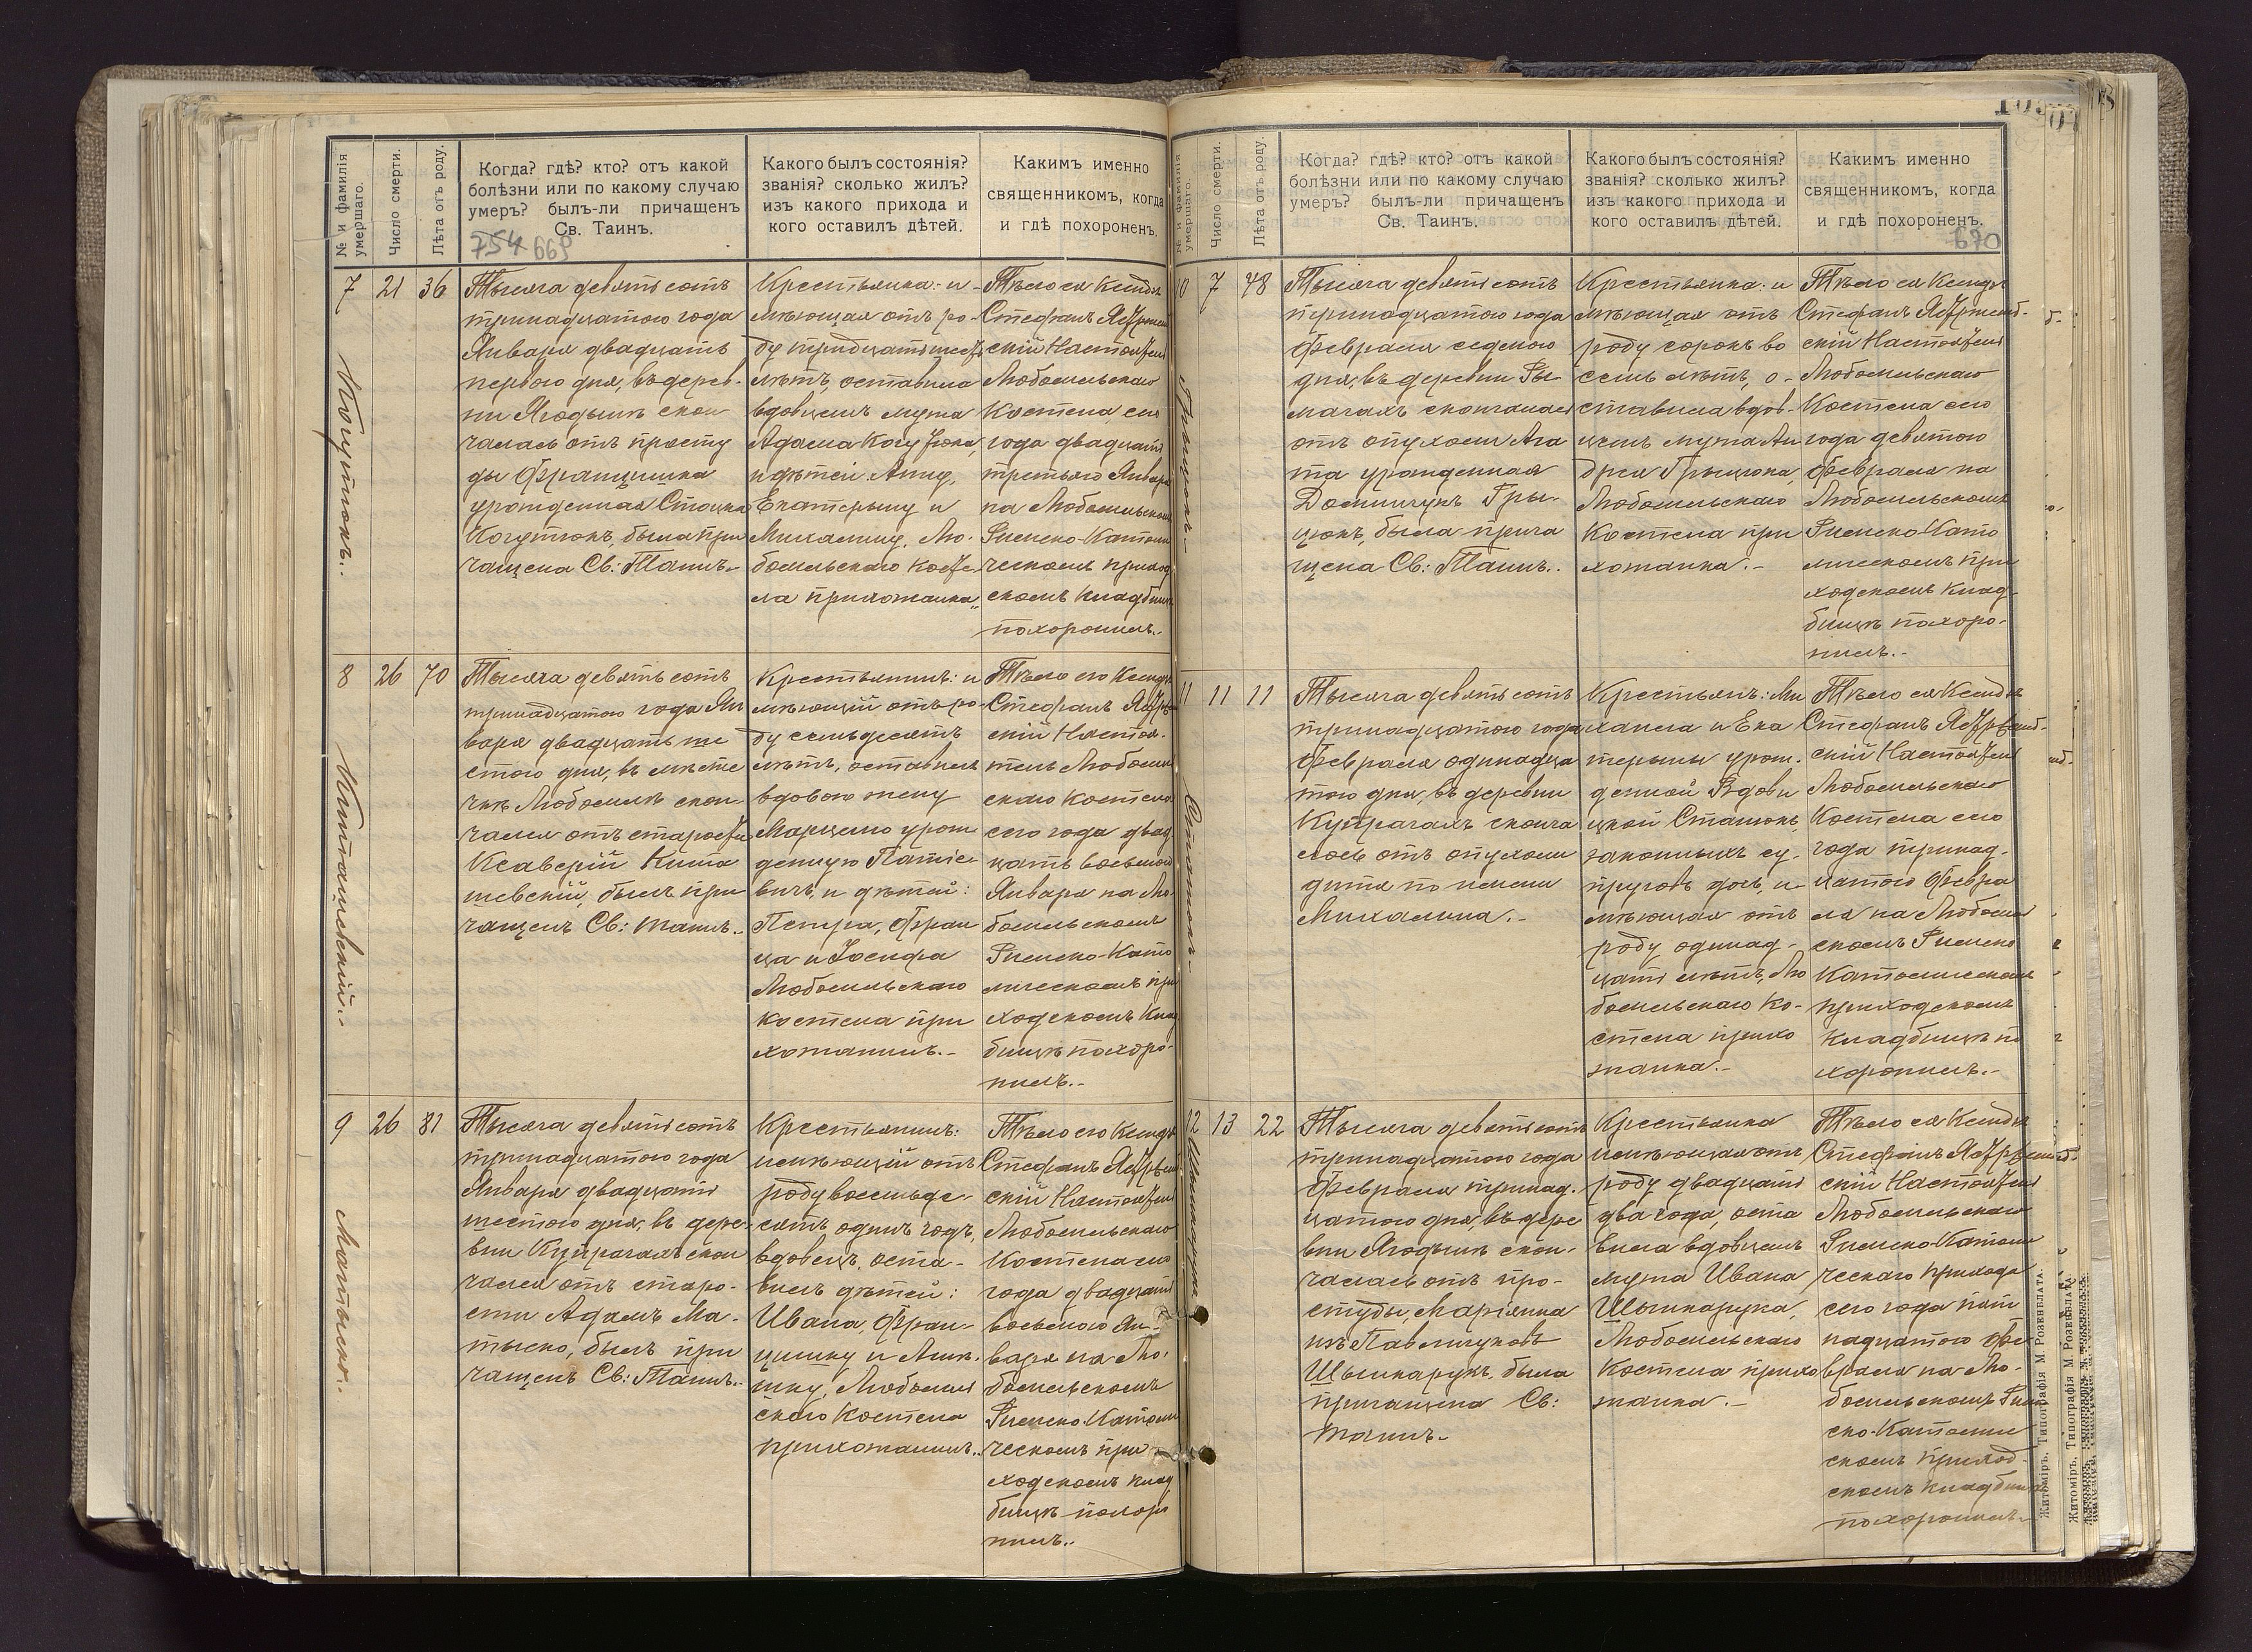 № и фамилія умершаго.
Число смерти.
Лѣта отъ роду.
Когда? гдѣ? кто? отъ какой
болѣзни или по какому случаю
умеръ? былъ-ли причащенъ
Св. Таинъ.
754 669
Какого былъ состоянія?
званія? сколько жилъ?
изъ какого прихода и
кого оставилъ дѣтей.
Какимъ именно
священникомъ, когда
и гдѣ похороненъ.
7
21
36
Когутюкъ.
Тысяча девятьсотъ
тринадцатого года
Января двадцать
перваго дня, въ дерев-
ни Ягодынѣ скон
чалась отъ просту
ды Францишка
урожденная
Когутюкъ, была при
чащена Св: Таинъ.
Крестьянка: и-
мѣющая отъ ро-
ду тридцатьшесть
лѣтъ, оставила
вдовцемъ мужа
Адама Когутюка,
и дѣтей Анну,
Екатерыну и
Михалину, Лю-
бомльскаго Косте-
ла прихожанка.
Тѣло ея Ксендзъ
Стефанъ
скій Настоятель
Любомльскаго
Костела сего
года двадцать
третьяго Января
на Любомльскомъ
Римско-Католи
ческомъ приход
скомъ кладбищѣ
похоронилъ.
8
26
70
Киташевскій.
Тысяча девятьсотъ
тринадцатого года Ян
варя двадцать ше
стого дня, въ мѣсте
чкѣ Любомлѣ скон-
чался отъ старости
Ксаверій Кита
шевскій, былъ при
чащенъ Св: Таинъ.
Крестьянинъ: и
мѣющій отъ ро-
ду семьдесятъ
лѣтъ, оставилъ
вдовою жену
Марцелю урож
денную
и дѣтей:
Петра, Фран
ца и Іосифа
Любомльскаго
костела при
хожанинъ.-
Тѣло его Ксендзъ
Стефанъ
скій Настоя-
тель Любомль
скаго костела
сего года двад
цать восьмого
Января на Лю-
бомльскомъ
Римско-Като
лическомъ при
ходскомъ клад
бищѣ похоро-
нилъ.-
9
26
81
Матыско.
Тысяча девятьсотъ
тринадцатого года
Января двадцать
шестого дня, въ дере
вни Купрачахъ скон
чался отъ старо-
сти Адамъ Ма-
тыско, былъ при
чащенъ Св: Таинъ.
Крестьянинъ:
имѣющій отъ
роду восемьде-
сятъ одинъ годъ,
вдовецъ, оста-
вилъ дѣтей:
Ивана, Фран-
цишку и
Любомль
скаго Костела
прихожанинъ.
Тѣло его Ксендзъ
Стефанъ
скій Настоятель
Любомльскаго
Костела сего
года двадцать
восьмого Ян-
варя на Лю-
бомльскомъ
Римско-Католи
ческомъ при
ходскомъ клад
бищѣ похоро
нилъ.
№ и фамилія умершаго.
Число смерти.
Лѣта отъ роду.
Когда? гдѣ? кто? отъ какой
болѣзни или по какому случаю
умеръ? былъ-ли причащенъ
Св. Таинъ.
Какого былъ состоянія?
званія? сколько жилъ?
изъ какого прихода и
кого оставилъ дѣтей.
Какимъ именно
священникомъ, когда
и гдѣ похороненъ.
670
10
7
48
Грыцюкъ.
Тысяча девятьсотъ
тринадцатого года
Февраля седмого
дня, въ деревни Ры
мачахъ скончалась
отъ опухоли Ага
та урожденная
Доминчукъ Гры-
цюкъ, была прича
щена Св: Таинъ.
Крестьянка: и
мѣющая отъ
роду сорокъ во
семь лѣтъ, о-
ставила вдов-
цемъ мужа Ан
дрея Грыцюка,
Любомльскаго
Костела при
хожанка.-
Тѣло ея Ксендзъ
Стефанъ
скій Настоятель
Любомльскаго
Костела сего
года девятого
Февраля на
Любомльскомъ
Римско-Като
лическомъ при
ходскомъ клад-
бищѣ похоро-
нилъ.-
11
11
11
Тысяча девятьсотъ
тринадцатого года
Февраля одинадца
того дня, въ деревни
Купрачахъ сконча
лась отъ опухоли
дитя по имени
Михалина.-
Крестьянъ: Ми
халла и Ека
терыны урож-
денной Вдови
цкой
законныхъ су-
пруговъ дочь, и-
мѣющая отъ
роду одинад-
цать лѣтъ, Лю
бомльскаго Ко-
стела прихо
жанка.-
Тѣло ея Ксендзъ
Стефанъ
скій Настоятель
Любомльскаго
Костела сего
года тринад-
цатого Февра
ля на Любомль
скомъ Римско
Католическомъ
приходскомъ
кладбищѣ по
хоронилъ.-
12
13
22
Шынкарукъ
Тысяча девятьсотъ
тринадцатого года
Февраля тринад-
цатого дня, въ дере
вни Ягодынѣ скон-
чалась отъ про-
студы, Маріянна
изъ Павлычуковъ
Шынкарукъ, была
причащена Св:
Таинъ.
Крестьянка
имѣющая отъ
роду двадцать
два года, оста
вила вдовцемъ
мужа Ивана
Шынкарука,
Любомльскаго
Костела прихо
жанка.-
Тѣло ея Ксендзъ
Стефанъ
скій Настоятель
Любомльскаго
Римско-Католи
ческаго прихода
сего года пят
надцатого Фе
враля на Лю-
бомльскомъ Рим
ско-Католиче
скомъ приход-
скомъ кладбищѣ
похоронилъ.
Житоміръ. Типографія М. Розенблата.
Житоміръ. Типографія М. Розенблата.